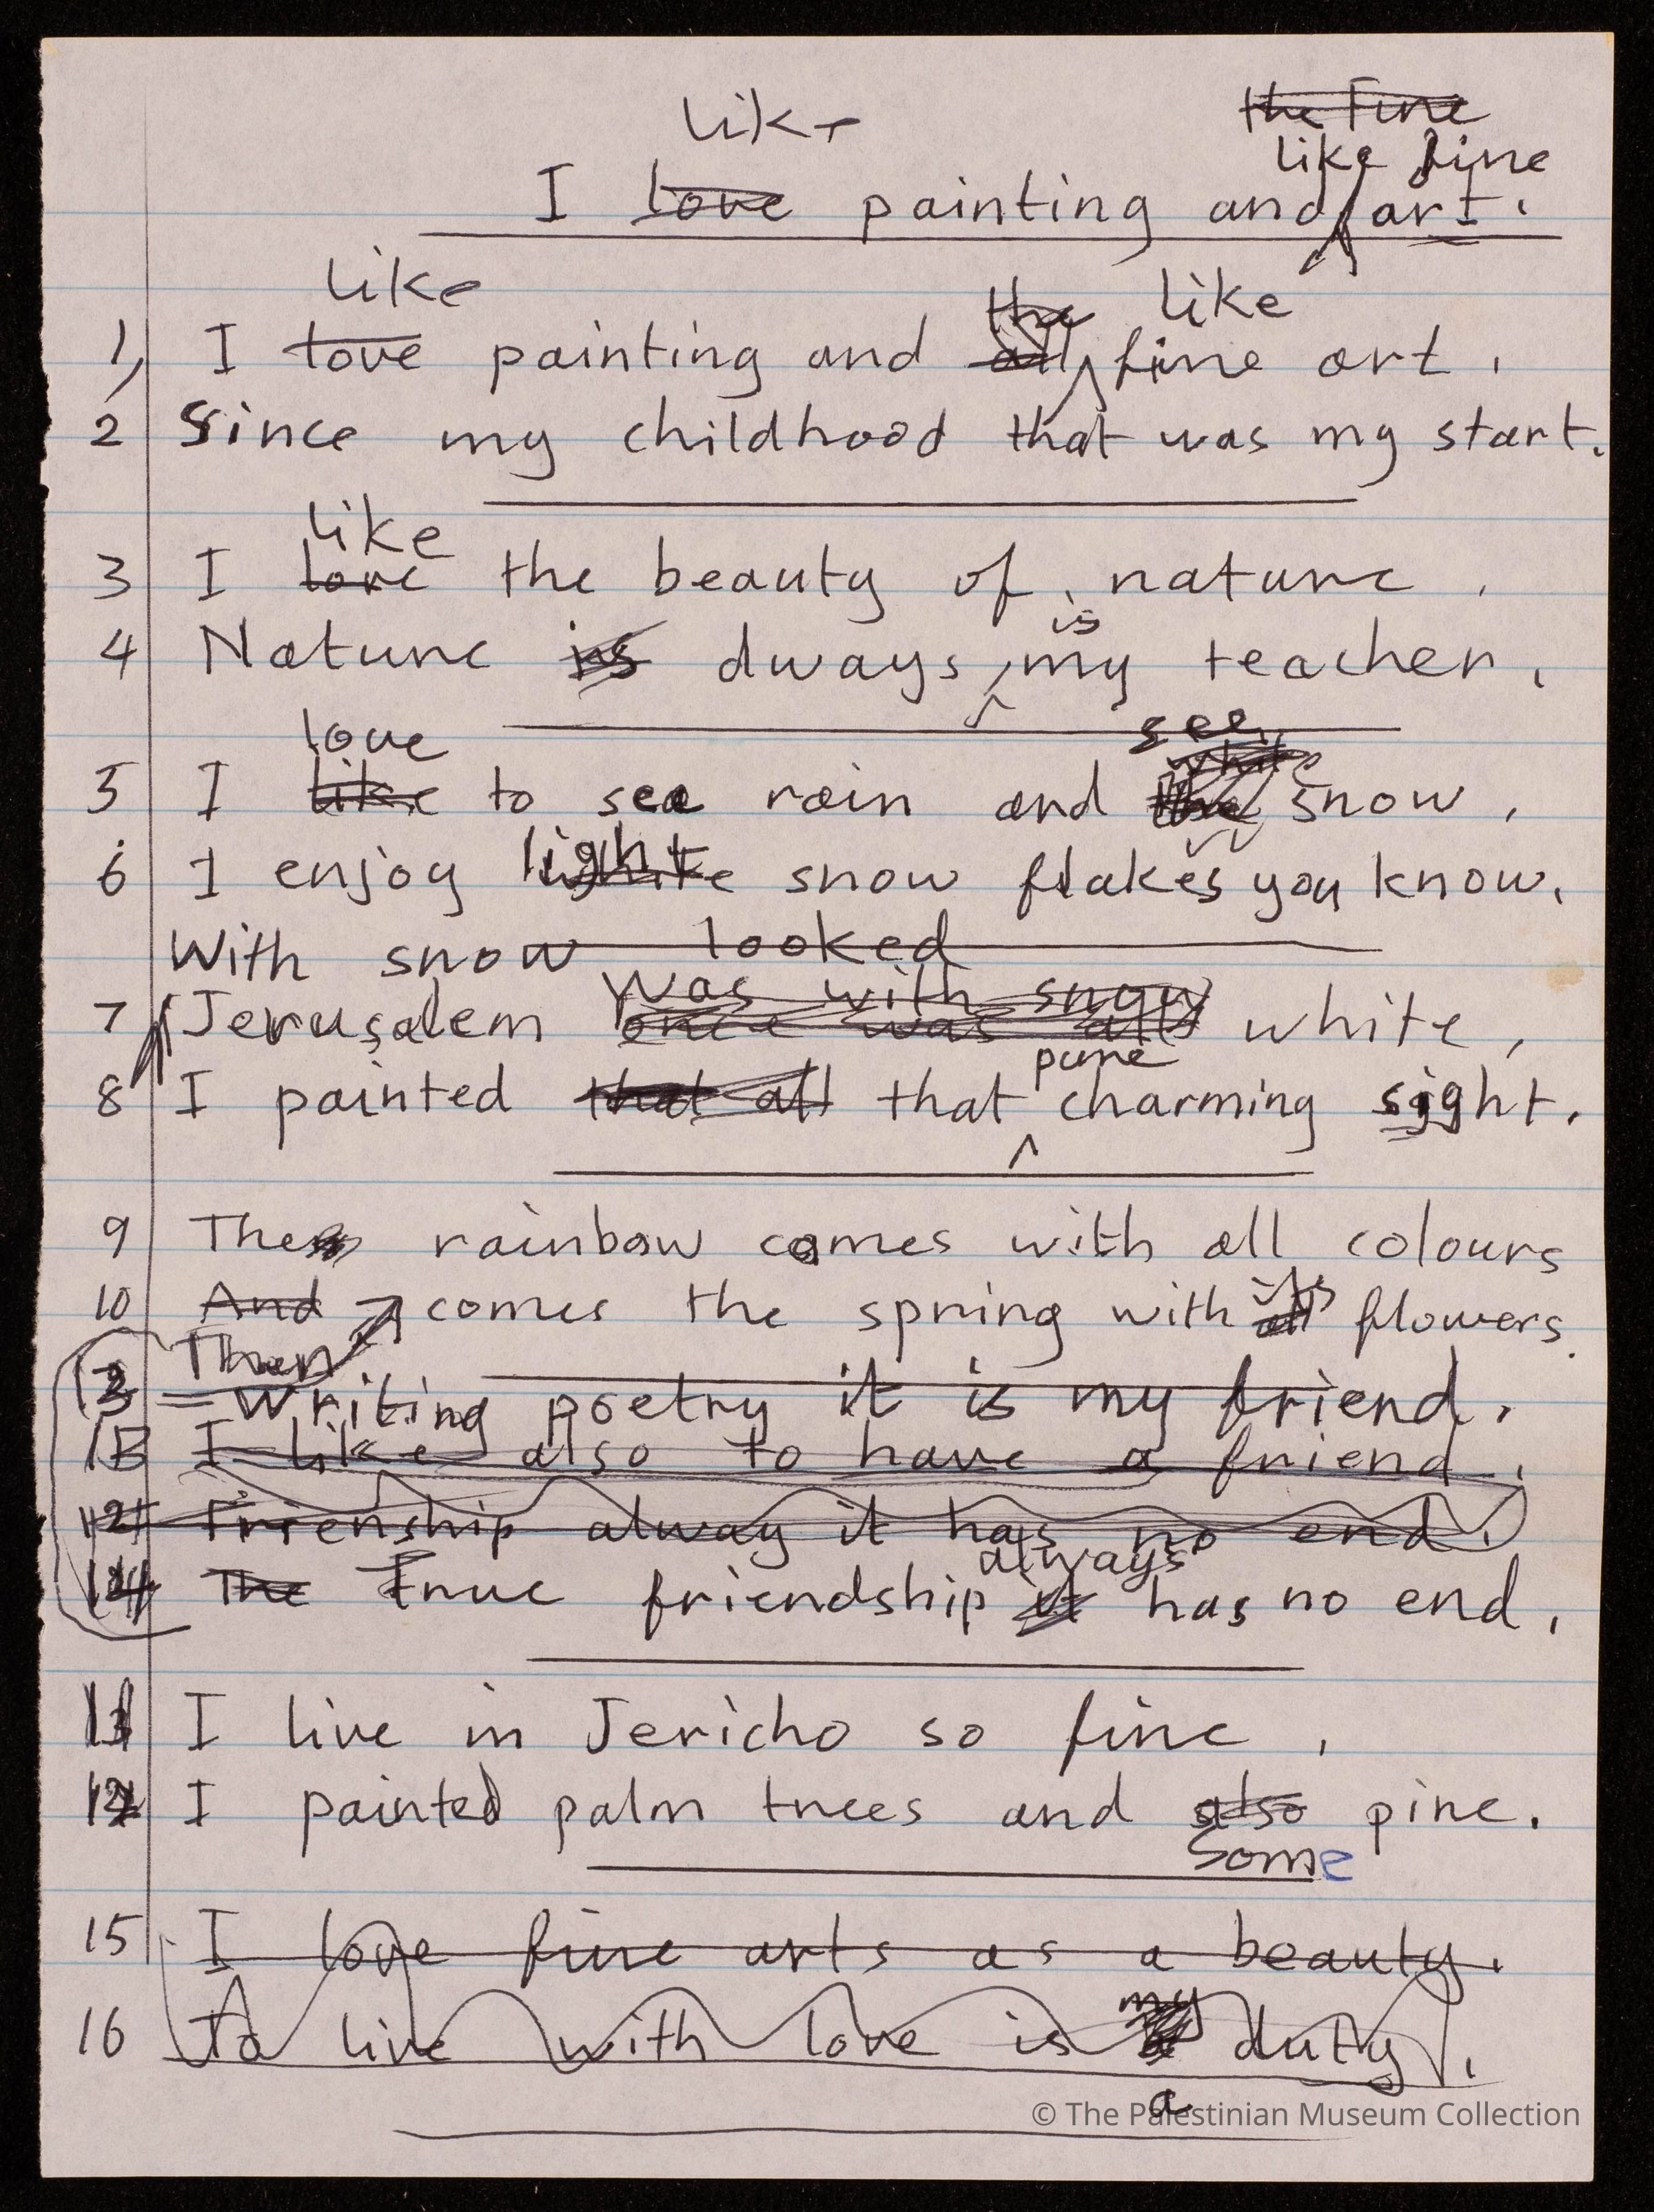 like
the Fine
like fine
I love painting and art.
like
the like
1, I love painting and all fine art.
2 Since my childhood that was my start.
like
3 I love the beauty of nature.
is
4 Nature is always my teacher.
love see
white
5 I like to see rain and the snow,
light
6 I enjoy white snow flakes you know.
With snow looked
was with snow
7 Jerusalem once was all white,
pure
8 I painted that all that charming sight.
9 The rainbow comes with all colours
its
10 And comes the spring with all flowers.
Then
13 = Writing poetry it is my friend.
I like also to have a friend.
12 Frienship alway it has no end.
always
14 The True friendship it has no end.
11 I live in Jericho so fine,
12 I painted palm trees and also pine.
Some
15 I love fine arts as a beauty.
my
16 To live with love is duty.
a
© The Palestinian Museum Collection